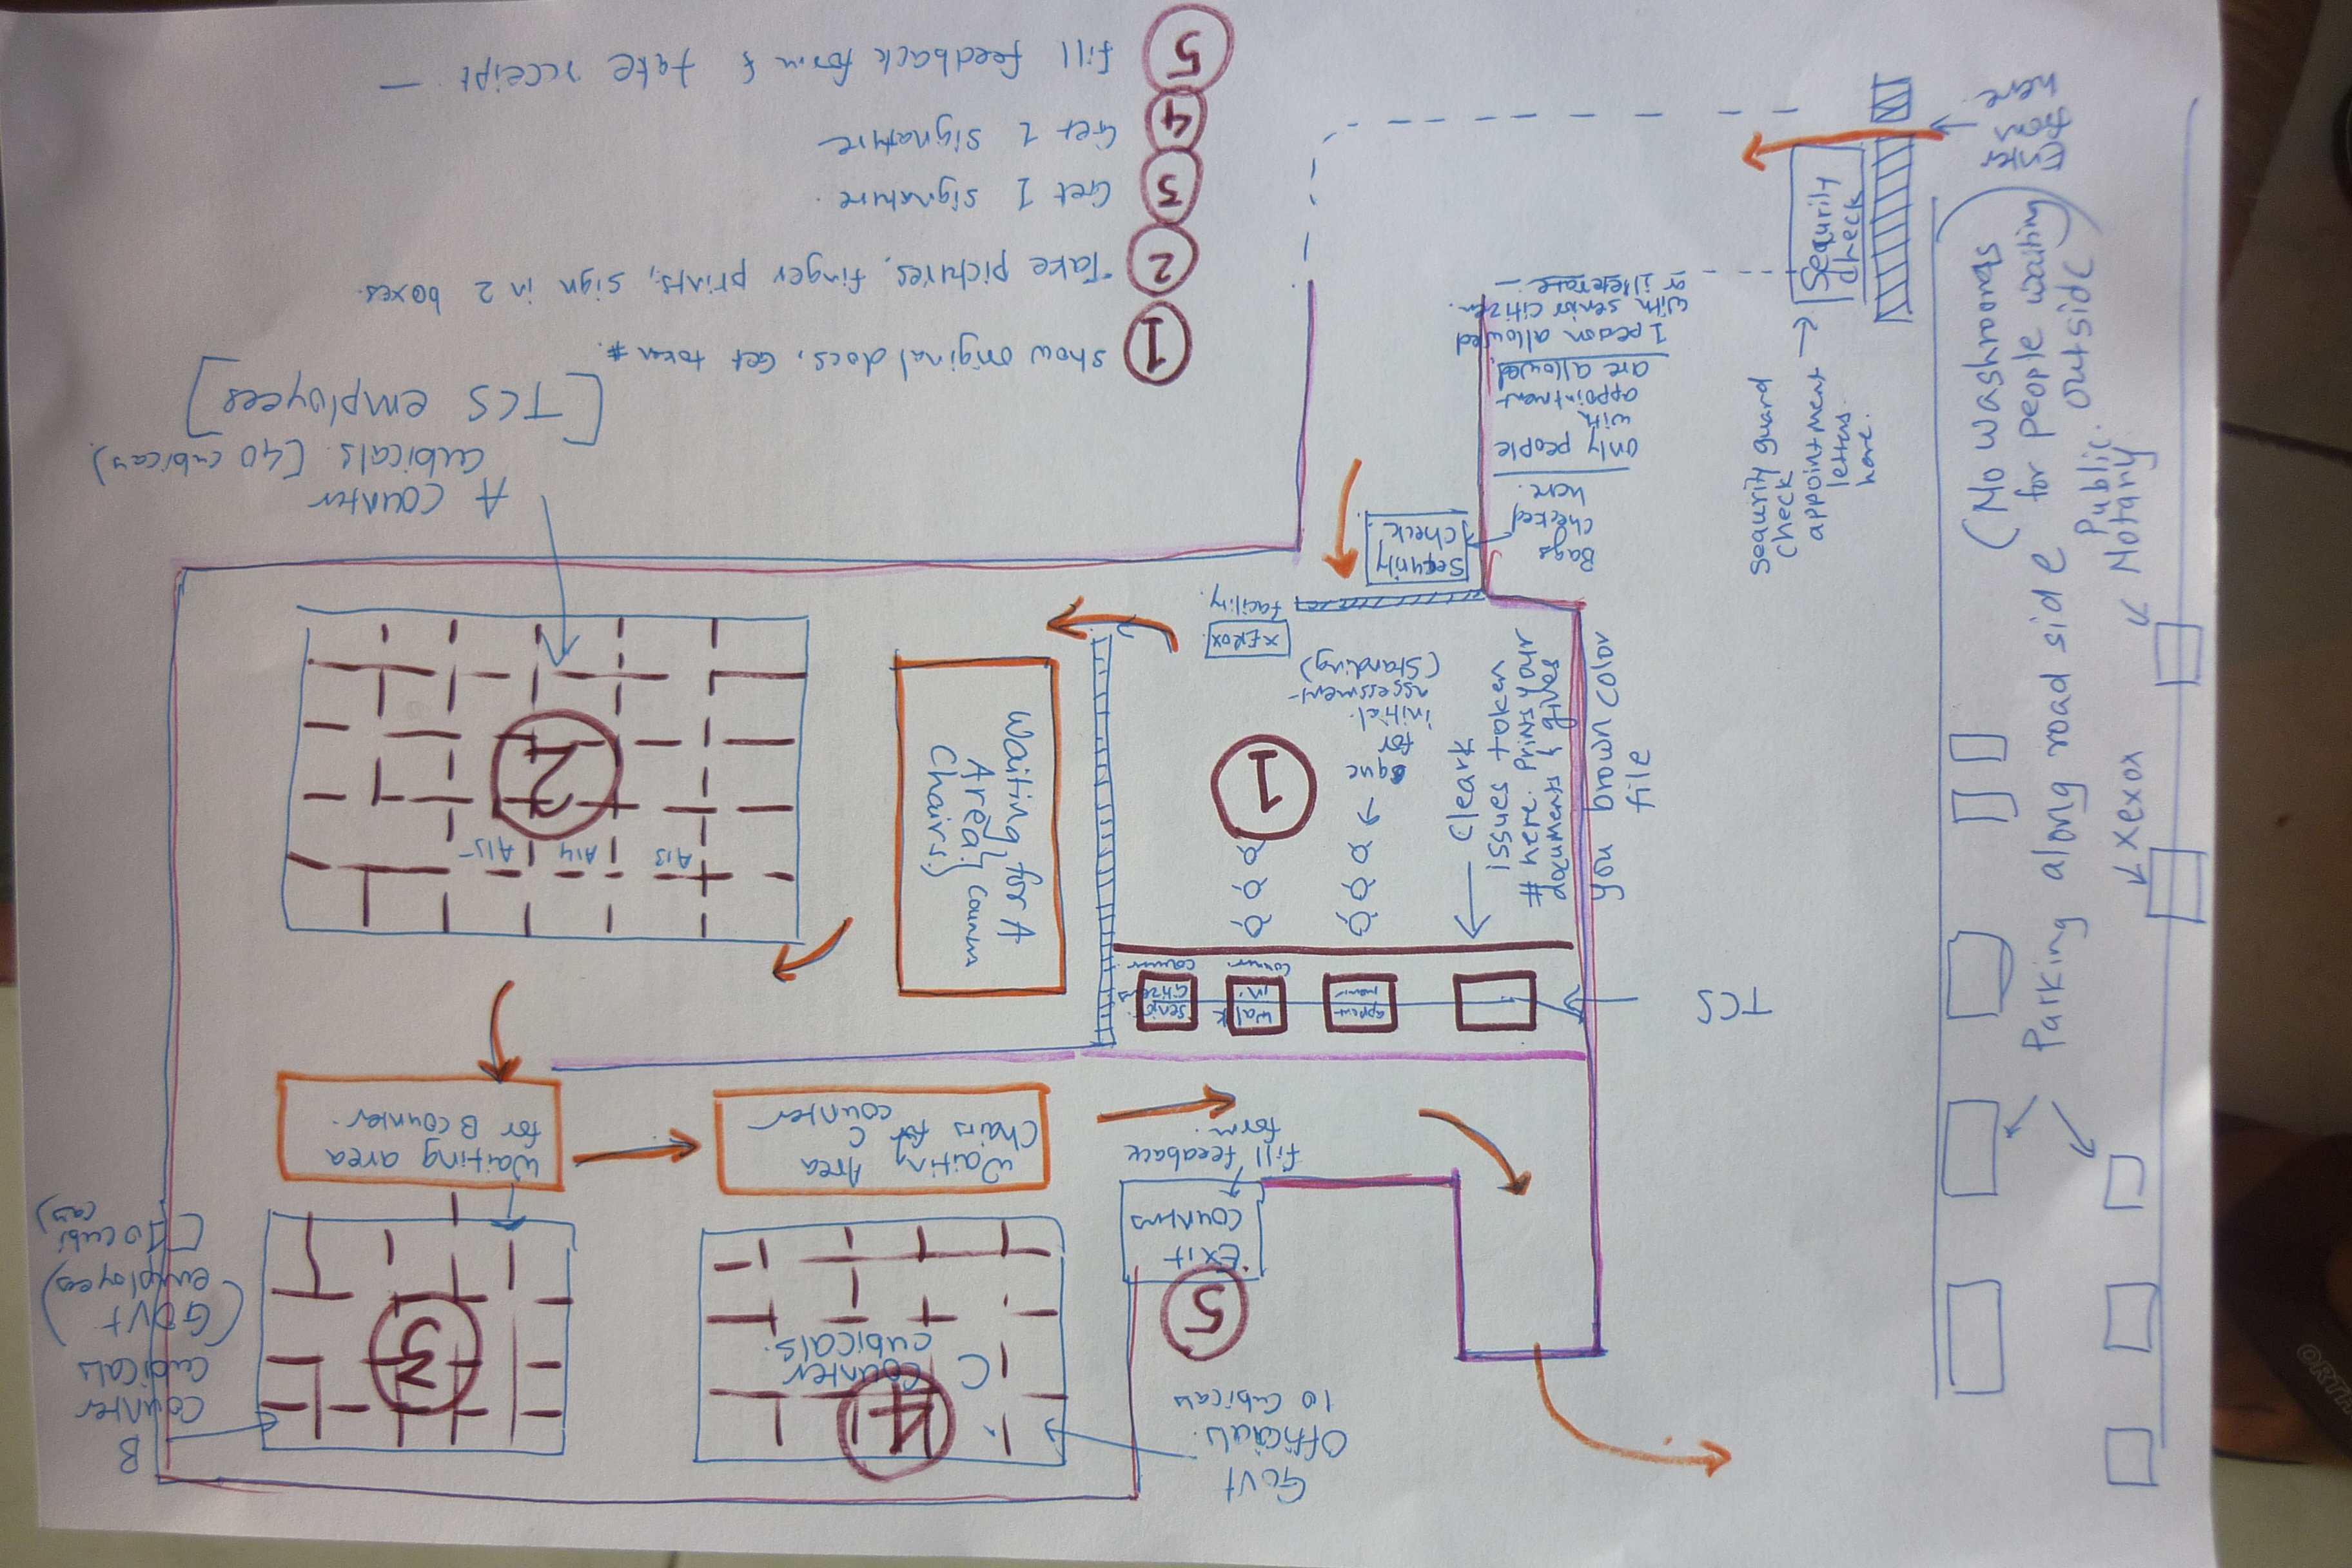 5 fill feedback form & take receipt. —
4 Get 1 signature
3 Get 1 signature.
2 Take pictures, finger prints, sign in 2 boxes.
1 show original docs, Get token #.
[TCS employees]
A counter
cubicals. (40 cubicals)
Waiting for A
Area. (counter
Chairs)
A13
A14
A15
2
1
XEROX
facility.
Sequrity
check
Bags
checked
here.
only people
with
appointment
are allowed.
1 person allowed
with senior citizen.
or illeterate. —
Sequrity
check
sequrity guard
check
appointment
letters
here.
(No washrooms
for people waiting
outside)
Parking along road side
Public.
Notary
xexox
que
for
initial.
assessment
(Standing)
Cleark
issues token
# here. Prints your
documents & gives
you brown color
file
Senior
Citizens
counter.
walk
in.
counter.
TCS
Waiting area
for B counter.
Waitin Area
Chairs for C
counter
fill feedback
form.
Exit
counters
5
B
counter
cubicals
(GOVT
employees)
3
C
counter
cubicals.
4
GOVT
Officials.
10 cubicals